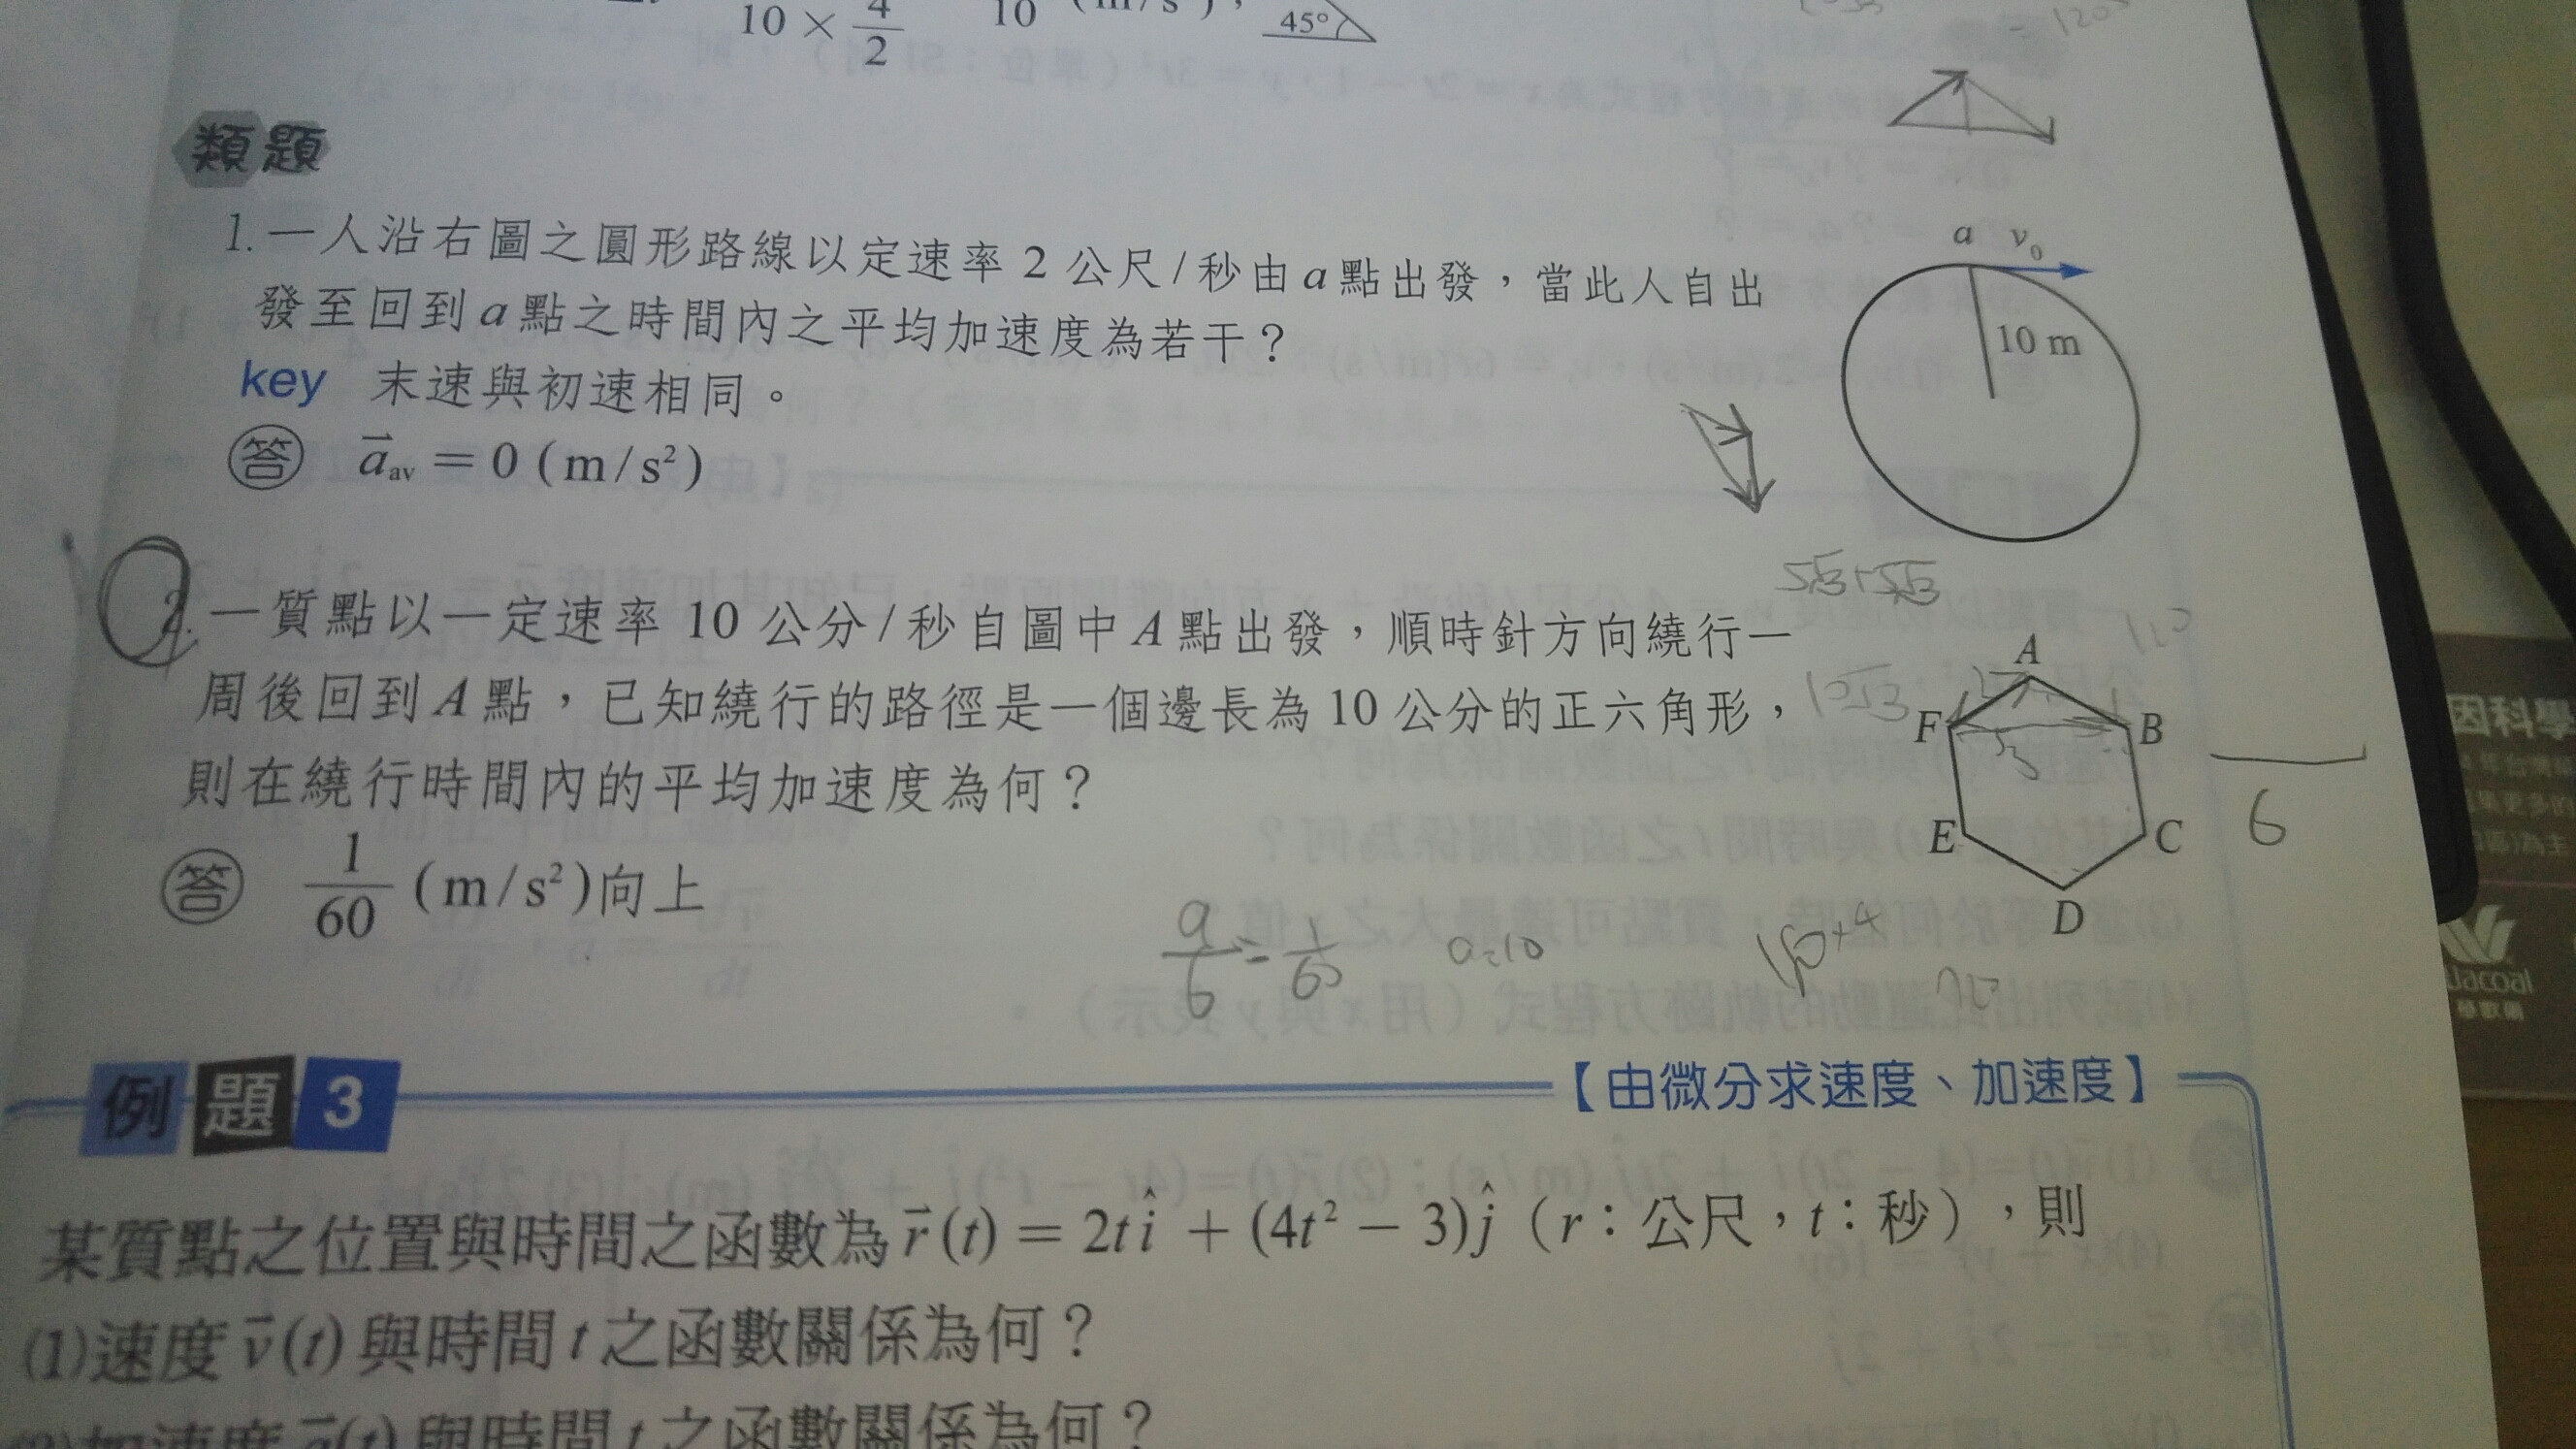 10 × 4/2
10 (m/s
45°
類題
1. 一人沿右圖之圓形路線以定速率 2 公尺/秒由 a 點出發，當此人自出
發至回到 a 點之時間內之平均加速度為若干？
key 末速與初速相同。
答 a⃗av = 0 (m/s²)
a v₀
10 m
5√3+5√3
2. 一質點以一定速率 10 公分/秒自圖中 A 點出發，順時針方向繞行一
周後回到 A 點，已知繞行的路徑是一個邊長為 10 公分的正六角形，
則在繞行時間內的平均加速度為何？
答 1/60 (m/s²)向上
10√3
A
F B
E C
D
6
a/6 = 1/60 a=10
例題3 【由微分求速度、加速度】
某質點之位置與時間之函數為 r⃗(t) = 2t î + (4t² − 3) ĵ（r：公尺，t：秒），則
(1)速度 v⃗(t) 與時間 t 之函數關係為何？
(2)加速度 a⃗(t) 與時間 t 之函數關係為何？
因科學
Wacoal
華歌爾